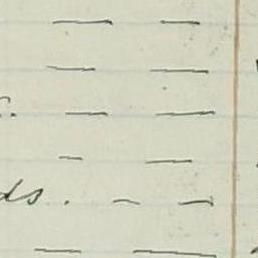 — —
— —
. — —
— —
ds. — —
— —